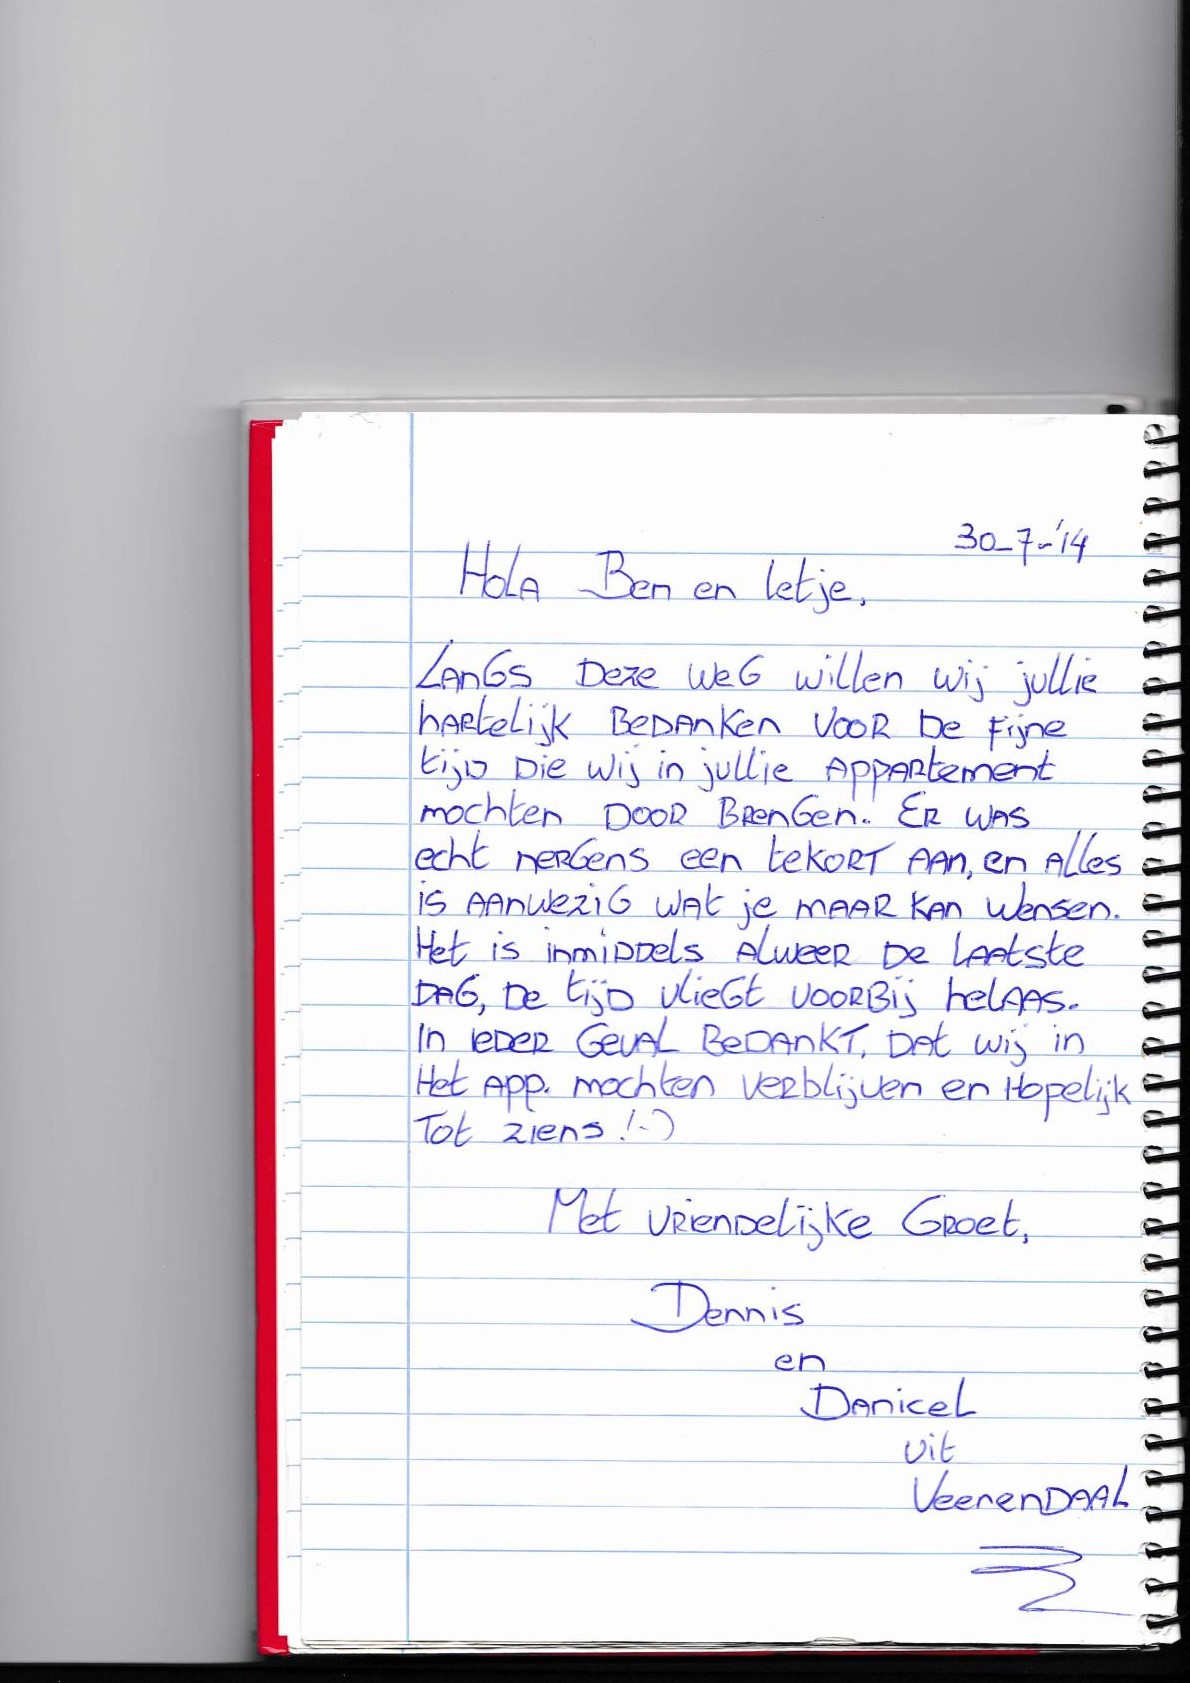 30-7-'14
Hola Ben en Ietje,
Langs deze weg willen wij jullie
hartelijk bedanken voor de fijne
tijd die wij in jullie appartement
mochten door brengen.. Er was
echt nergens een tekort aan, en alles
is aanwezig wat je maar kan wensen.
Het is inmiddels alweer de laatste
dag, de tijd vliegt voorbij helaas.
In ieder geval bedankt, dat wij in
Het app. mochten verblijven en hopelijk
Tot ziens !-)
Met vriendelijke Groet,
Dennis
en
Danicel
uit
Veenendaal